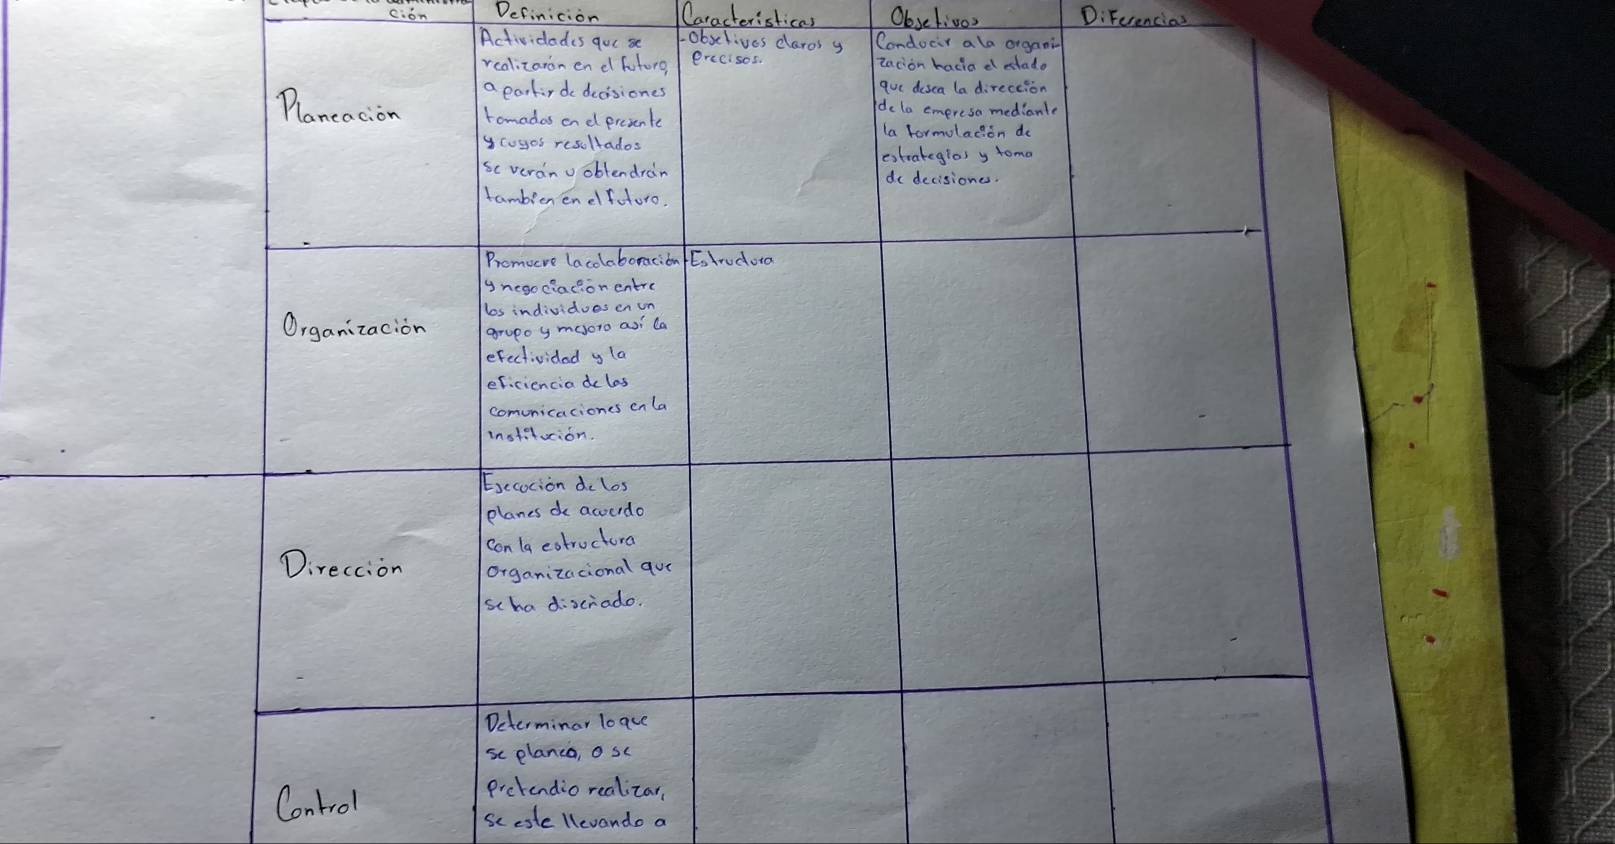 ción
Definición
Caracteristicas
Objetivos
Diferencias
Planeación
Actividades que se
realizarán en el futuro,
a partir de decisiones
tomados en el presente
y cuyos resultados
se verán y obtendrán
tambien en el futuro.
-Objetivos claros y
precisos.
Conducir a la organi-
zación hacia el estado
que desea la dirección
de la empresa mediante
la formulación de
estrategias y toma
de decisiones.
Organización
Promueve la colaboración
y negociación entre
los individuos en un
grupo y mejora así la
efectividad y la
eficiencia de las
comunicaciones en la
institución.
Estructura
Dirección
Ejecución de los
planes de acuerdo
con la estructura
organizacional que
se ha diseñado.
Control
Determinar lo que
se planeó, o se
pretendio realizar,
se este llevando a